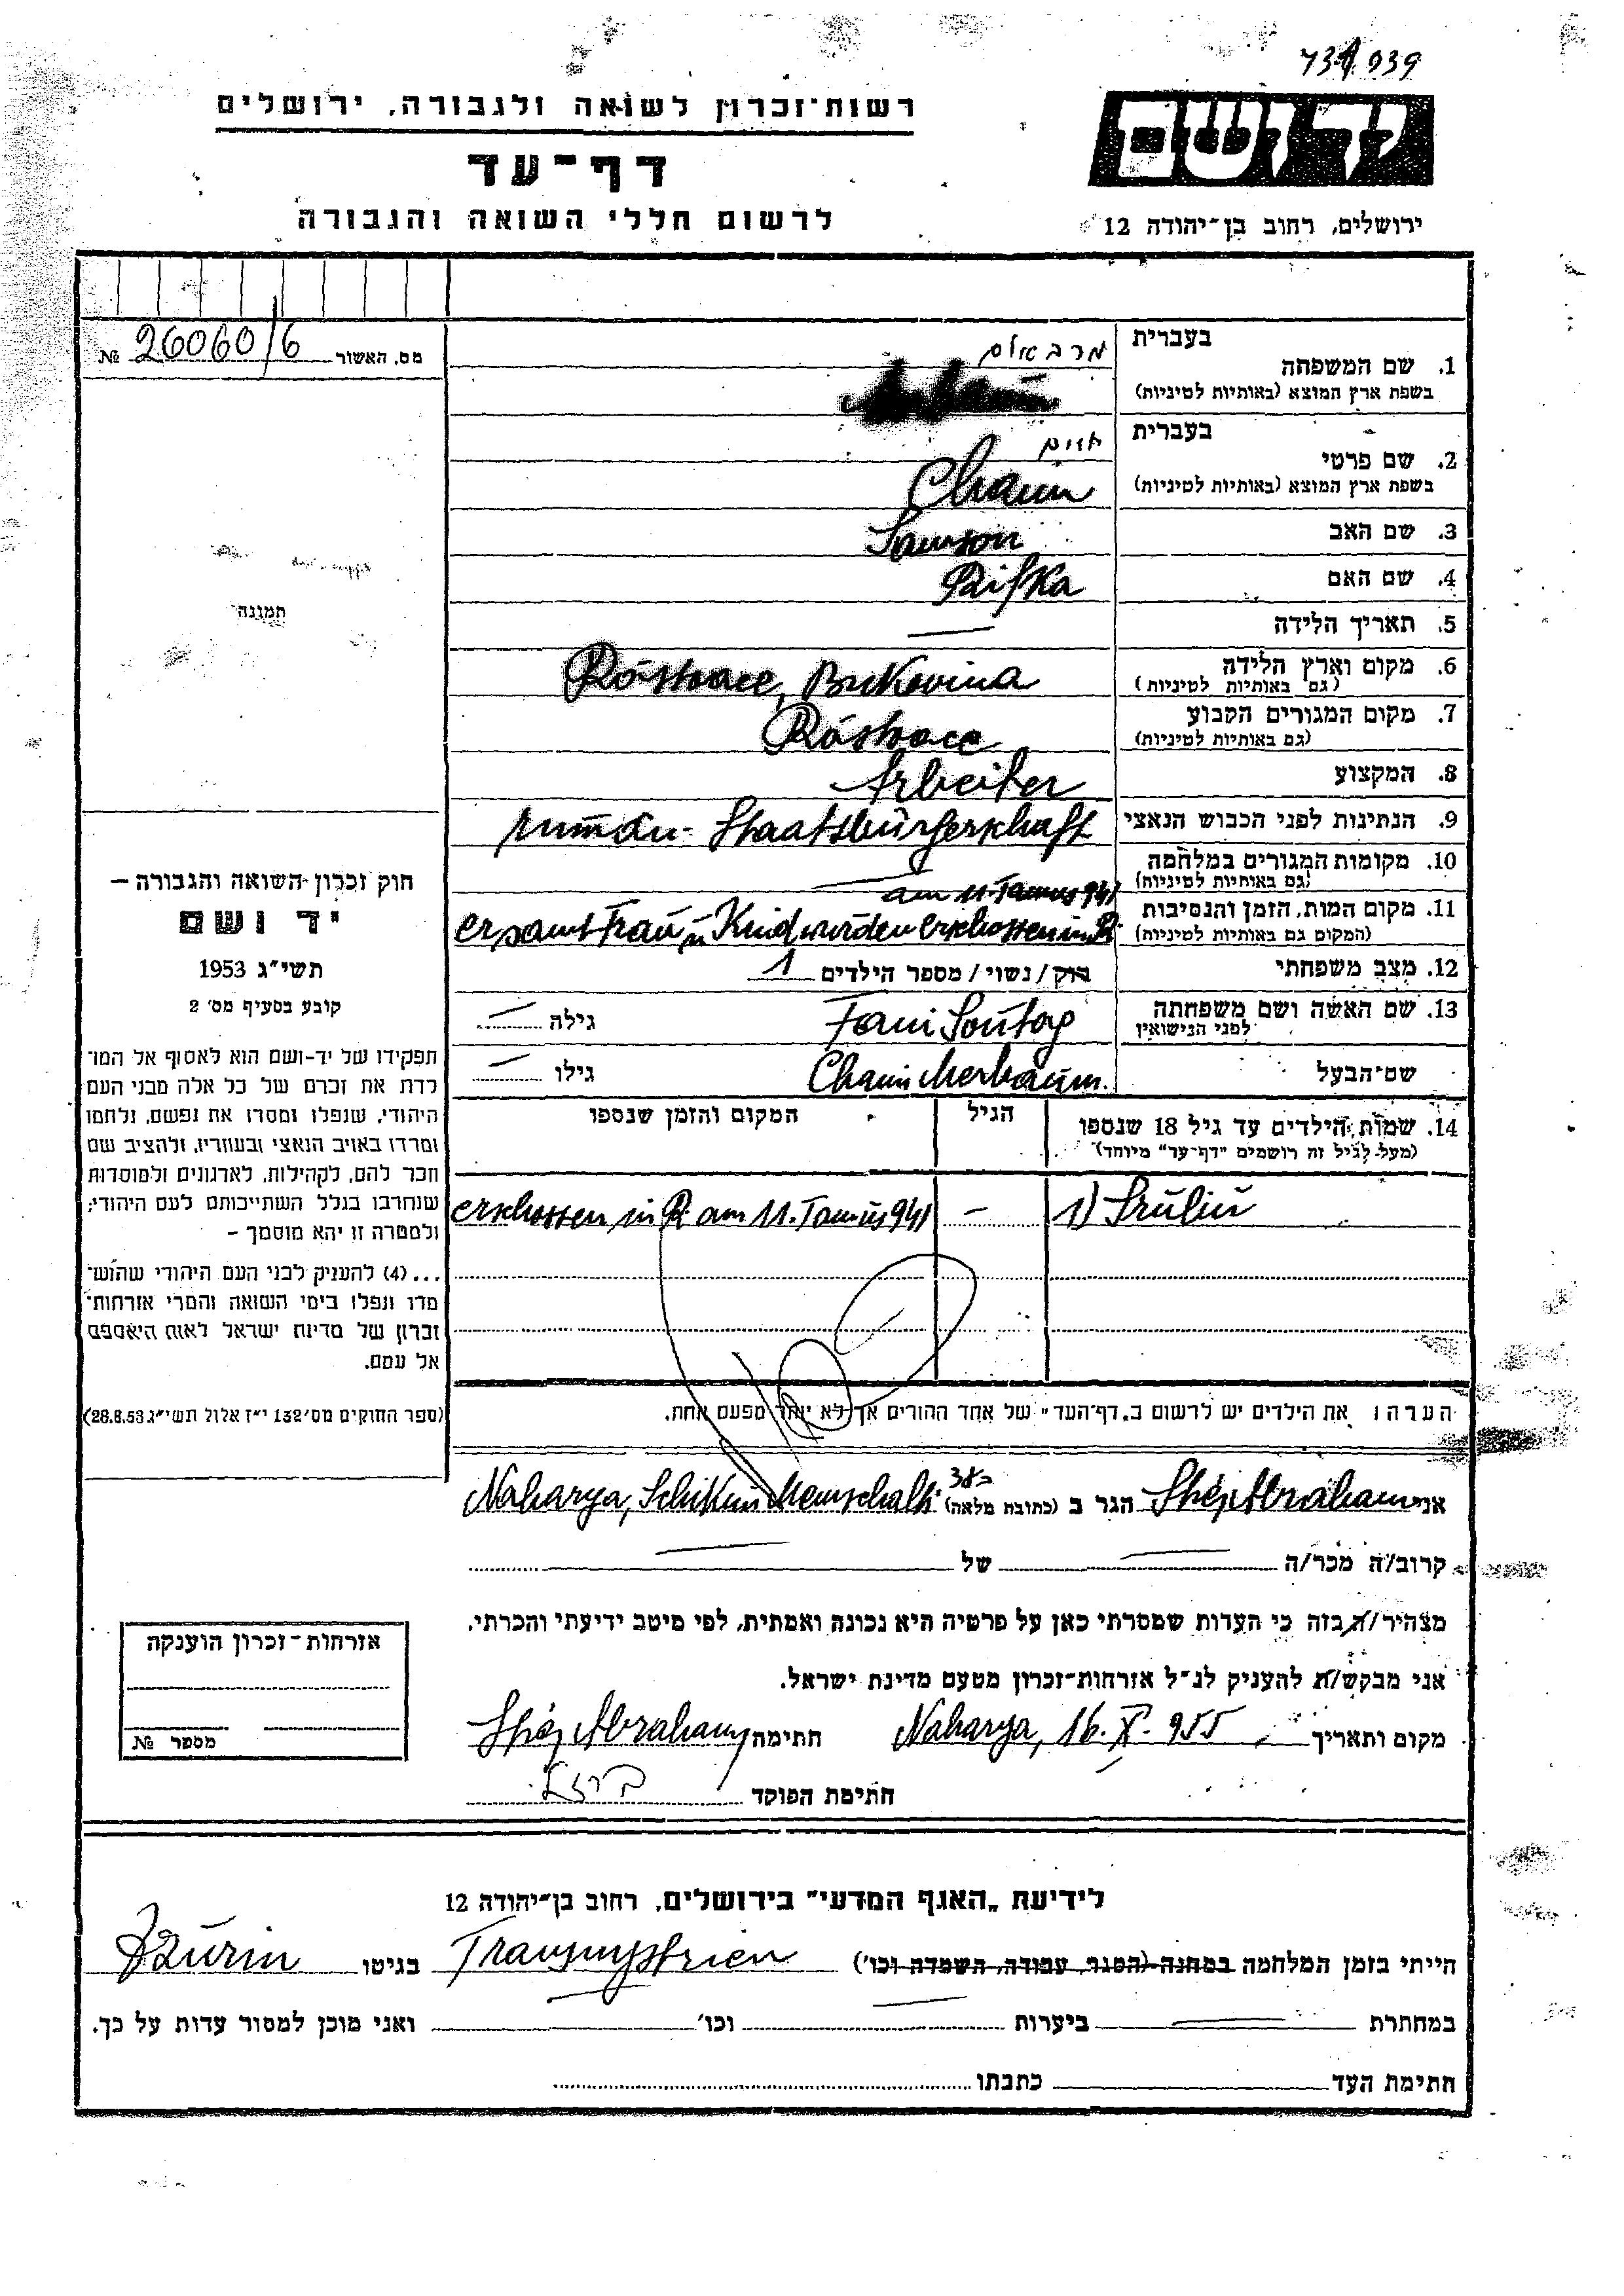 734939
רשות־זכרון לשואה ולגבורה, ירושלים
דף־עד
לרשום חללי השואה והגבורה
יד ושם
ירושלים, רחוב בן־יהודה 12
מס. האשור 26060/6 №
תמונה
בעברית מרבאום
1. שם המשפחה
בשפת ארץ המוצא (באותיות לטיניות)
בעברית חיים
2. שם פרטי
בשפת ארץ המוצא (באותיות לטיניות) Chaim
3. שם האב Samson
4. שם האם Rifka
5. תאריך הלידה —
6. מקום וארץ הלידה Róstoace, Bukovina
(גם באותיות לטיניות)
7. מקום המגורים הקבוע Róstoace
(גם באותיות לטיניות)
8. המקצוע Arbeiter
9. הנתינות לפני הכבוש הנאצי rumän. Staatsbürgerschaft
10. מקומות המגורים במלחמה —
(גם באותיות לטיניות)
am 11. Tamus 941
11. מקום המות, הזמן והנסיבות er samt Frau u Kind wurden erschossen in R.
(המקום גם באותיות לטיניות)
12. מצב משפחתי רוק / נשוי / מספר הילדים 1
13. שם האשה ושם משפחתה Fani Sontag גילה —
לפני הנישואין
שם־הבעל Chaim Merbaum. גילו —
14. שמות הילדים עד גיל 18 שנספו הגיל המקום והזמן שנספו
(מעל לגיל זה רושמים "דף־עד" מיוחד)
1) Sruliu — erschossen in R. am 11. Tamus 941
הערה: את הילדים יש לרשום ב„דף־העד" של אחד ההורים אך לא יותר מפעם אחת.
חוק זכרון השואה והגבורה —
יד ושם
תשי"ג 1953
קובע בסעיף מס' 2
תפקידו של יד־ושם הוא לאסוף אל המו־
לדת את זכרם של כל אלה מבני העם
היהודי, שנפלו ומסרו את נפשם, נלחמו
ומרדו באויב הנאצי ובעוזריו, ולהציב שם
וזכר להם, לקהילות, לארגונים ולמוסדות
שנחרבו בגלל השתייכותם לעם היהודי;
ולמטרה זו יהא מוסמך —
...(4) להעניק לבני העם היהודי שהוש־
מדו ונפלו בימי השואה והמרי אזרחות־
זכרון של מדינת ישראל לאות היאספם
אל עמם.
(ספר החוקים מס' 132 י"ז אלול תשי"ג 28.8.53)
אני Shéz Abraham הגר ב (כתובת מלאה) Naharya, Schikun Memschalti
קרוב/ה מכר/ה — של —
מצהיר/ה בזה כי העדות שמסרתי כאן על פרטיה היא נכונה ואמתית, לפי מיטב ידיעתי והכרתי.
אני מבקש/ת להעניק לנ"ל אזרחות־זכרון מטעם מדינת ישראל.
מקום ותאריך Naharya, 16. X. 955 חתימה Shéz Abraham
חתימת הפוקד
אזרחות־זכרון הוענקה
מספר №
לידיעת „האגף המדעי" בירושלים, רחוב בן־יהודה 12
הייתי בזמן המלחמה במחנה (הסגר, עבודה, השמדה וכו') Transnystrien בגיטו Dzurin
במחתרת — ביערות — וכו' — ואני מוכן למסור עדות על כך.
חתימת העד כתבתו